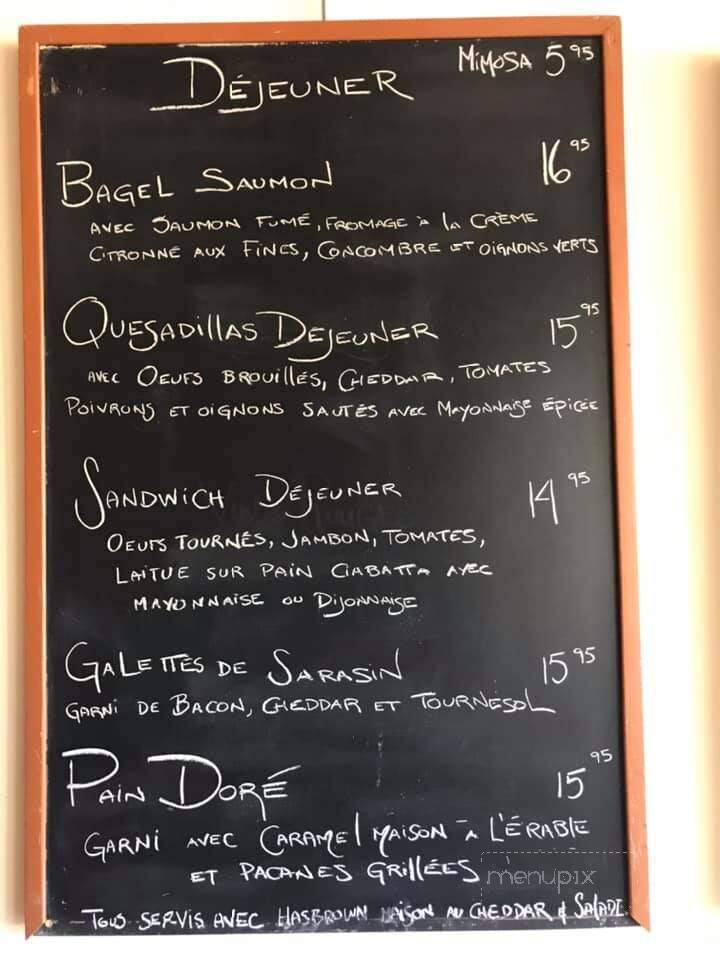 DÉJEUNER
MIMOSA 5 95
BAGEL SAUMON 16 95
AVEC SAUMON FUMÉ, FROMAGE À la CRÈME
CITRONNÉ AUX FINES, CONCOMBRE ET OIGNONS VERTS
QUESADILLAS DEJEUNER 15 95
AVEC OEUFS BROUILLÉS, CHEDDAR, TOMATES
POIVRONS ET OIGNONS SAUTÉS AVEC MAYONNAISE ÉPICÉE
SANDWICH DÉJEUNER 14 95
OEUFS TOURNÉS, JAMBON, TOMATES,
LAITUE SUR PAIN CIABATTA AVEC
MAYONNAISE OU DIJONNAISE
GALETTES DE SARASIN 15 95
GARNI DE BACON, CHEDDAR ET TOURNESOL
PAIN DORÉ 15 95
GARNI AVEC CARAMEL MAISON À L'ÉRABLE
ET PACANES GRILLÉES
menupix
TOUS SERVIS AVEC HASBROWN MAISON AU CHEDDAR & SALADE